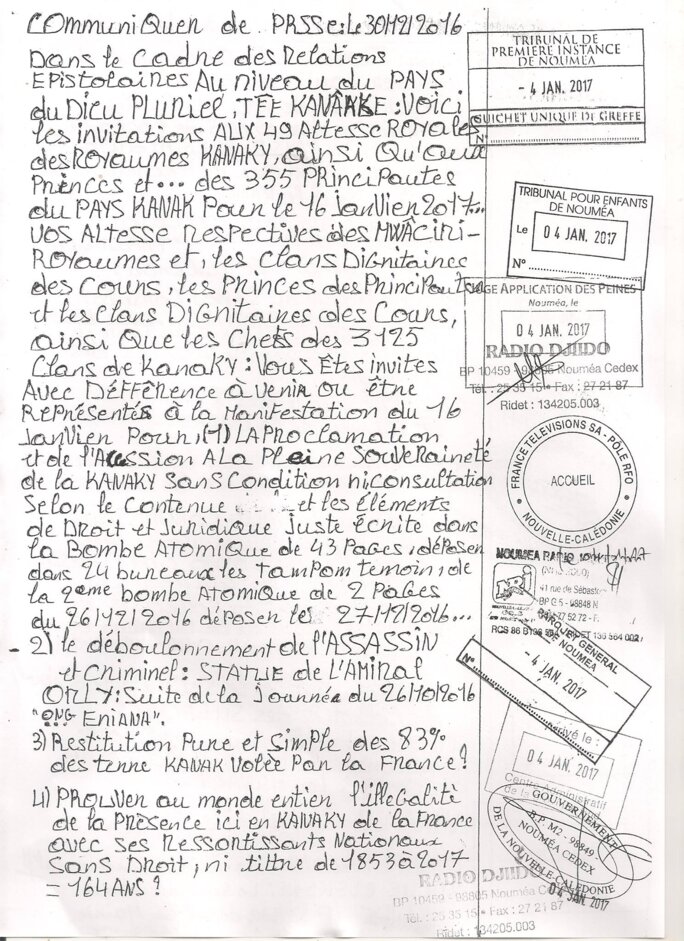 COMMUNIQUER de PRSSE: Le 30/12/2016
Dans le cadre des Relations
EPistolaires AU niveau du PAYS
du Dieu PLURieL, TÉE KANÂKE : VOICI
les invitations AUX 49 Altesse ROYALes
des ROYAUMES KANAKY, ainsi Qu'aux
PRinces et... des 355 PRinciPautes
du PAYS KANAK POUR le 16 janVier 2017...
VOS ALTESSE Respectives des MWÂCIRI-
ROYAUMES et, les Clans DiGnitaires
des COURS, les PRinces des PrinciPautes
et les Clans DiGnitaires des Cours,
ainsi Que les Chefs des 3125
Clans de KanaKY : VOUS Êtes invites
Avec DÉFFÉRENCE à Venir OU être
RePRésentés à la Manifestation du 16
JanVier Pour, (1) LA PROClamation
et de l'ACession A LA PLeine SOUVeRaineté
de la KANAKY Sans Condition ni Consultation
Selon le Contenue et les Éléments
de DRoit et JuRidique juste Écrite dans
la Bombe Atomique de 43 Pages, déposer
dans 24 bureaux les TamPom Temoin, de
la 2eme bombe Atomique de 2 Pages
du 26/12/2016 déposer le 27/12/2016...
2) le déboulonnement de l'ASSASSIN
et Criminel: STATUE de L'AMIRAL
ORLY: Suite de la journée du 26/10/2016
"ONG ENIANA".
3) Restitution Pure et SimPle des 83%
des terre KANAK Volée Par la France?
4) PROUVER au monde entier l'illégalité
de la Présence ici en KANAKY de la France
avec ses Ressortissants Nationaux
Sans DRoit, ni tittre de 1853 à 2017
= 164 ANS?
TRIBUNAL DE
PREMIERE INSTANCE
DE NOUMÉA
- 4 JAN. 2017
GUICHET UNIQUE DE GREFFE
N°
TRIBUNAL POUR ENFANTS
DE NOUMÉA
Le 04 JAN. 2017
N°
JUGE APPLICATION DES PEINES
Nouméa, le
04 JAN. 2017
RADIO DJIIDO
BP 10459 - 98805 Nouméa Cedex
Tél. : 25 35 15 • Fax : 27 21 87
Ridet : 134205.003
FRANCE TELEVISIONS SA - PÔLE RFO
ACCUEIL
NOUVELLE-CALÉDONIE
NOUMEA RADIO
41 rue de Sébastopol
27 52 72
PARQUET GENERAL
DE NOUMÉA
- 4 JAN. 2017
N°
04 JAN. 2017
Centre Administratif
de la
GOUVERNEMENT
B.P. M2 - 98849 -
NOUMÉA CEDEX
DE LA NOUVELLE-CALÉDONIE
04 JAN. 2017
RADIO DJIIDO
BP 10459 - 98805 Nouméa Cedex
Tél. : 25 35 15 • Fax : 27 21 87
Ridet : 134205.003